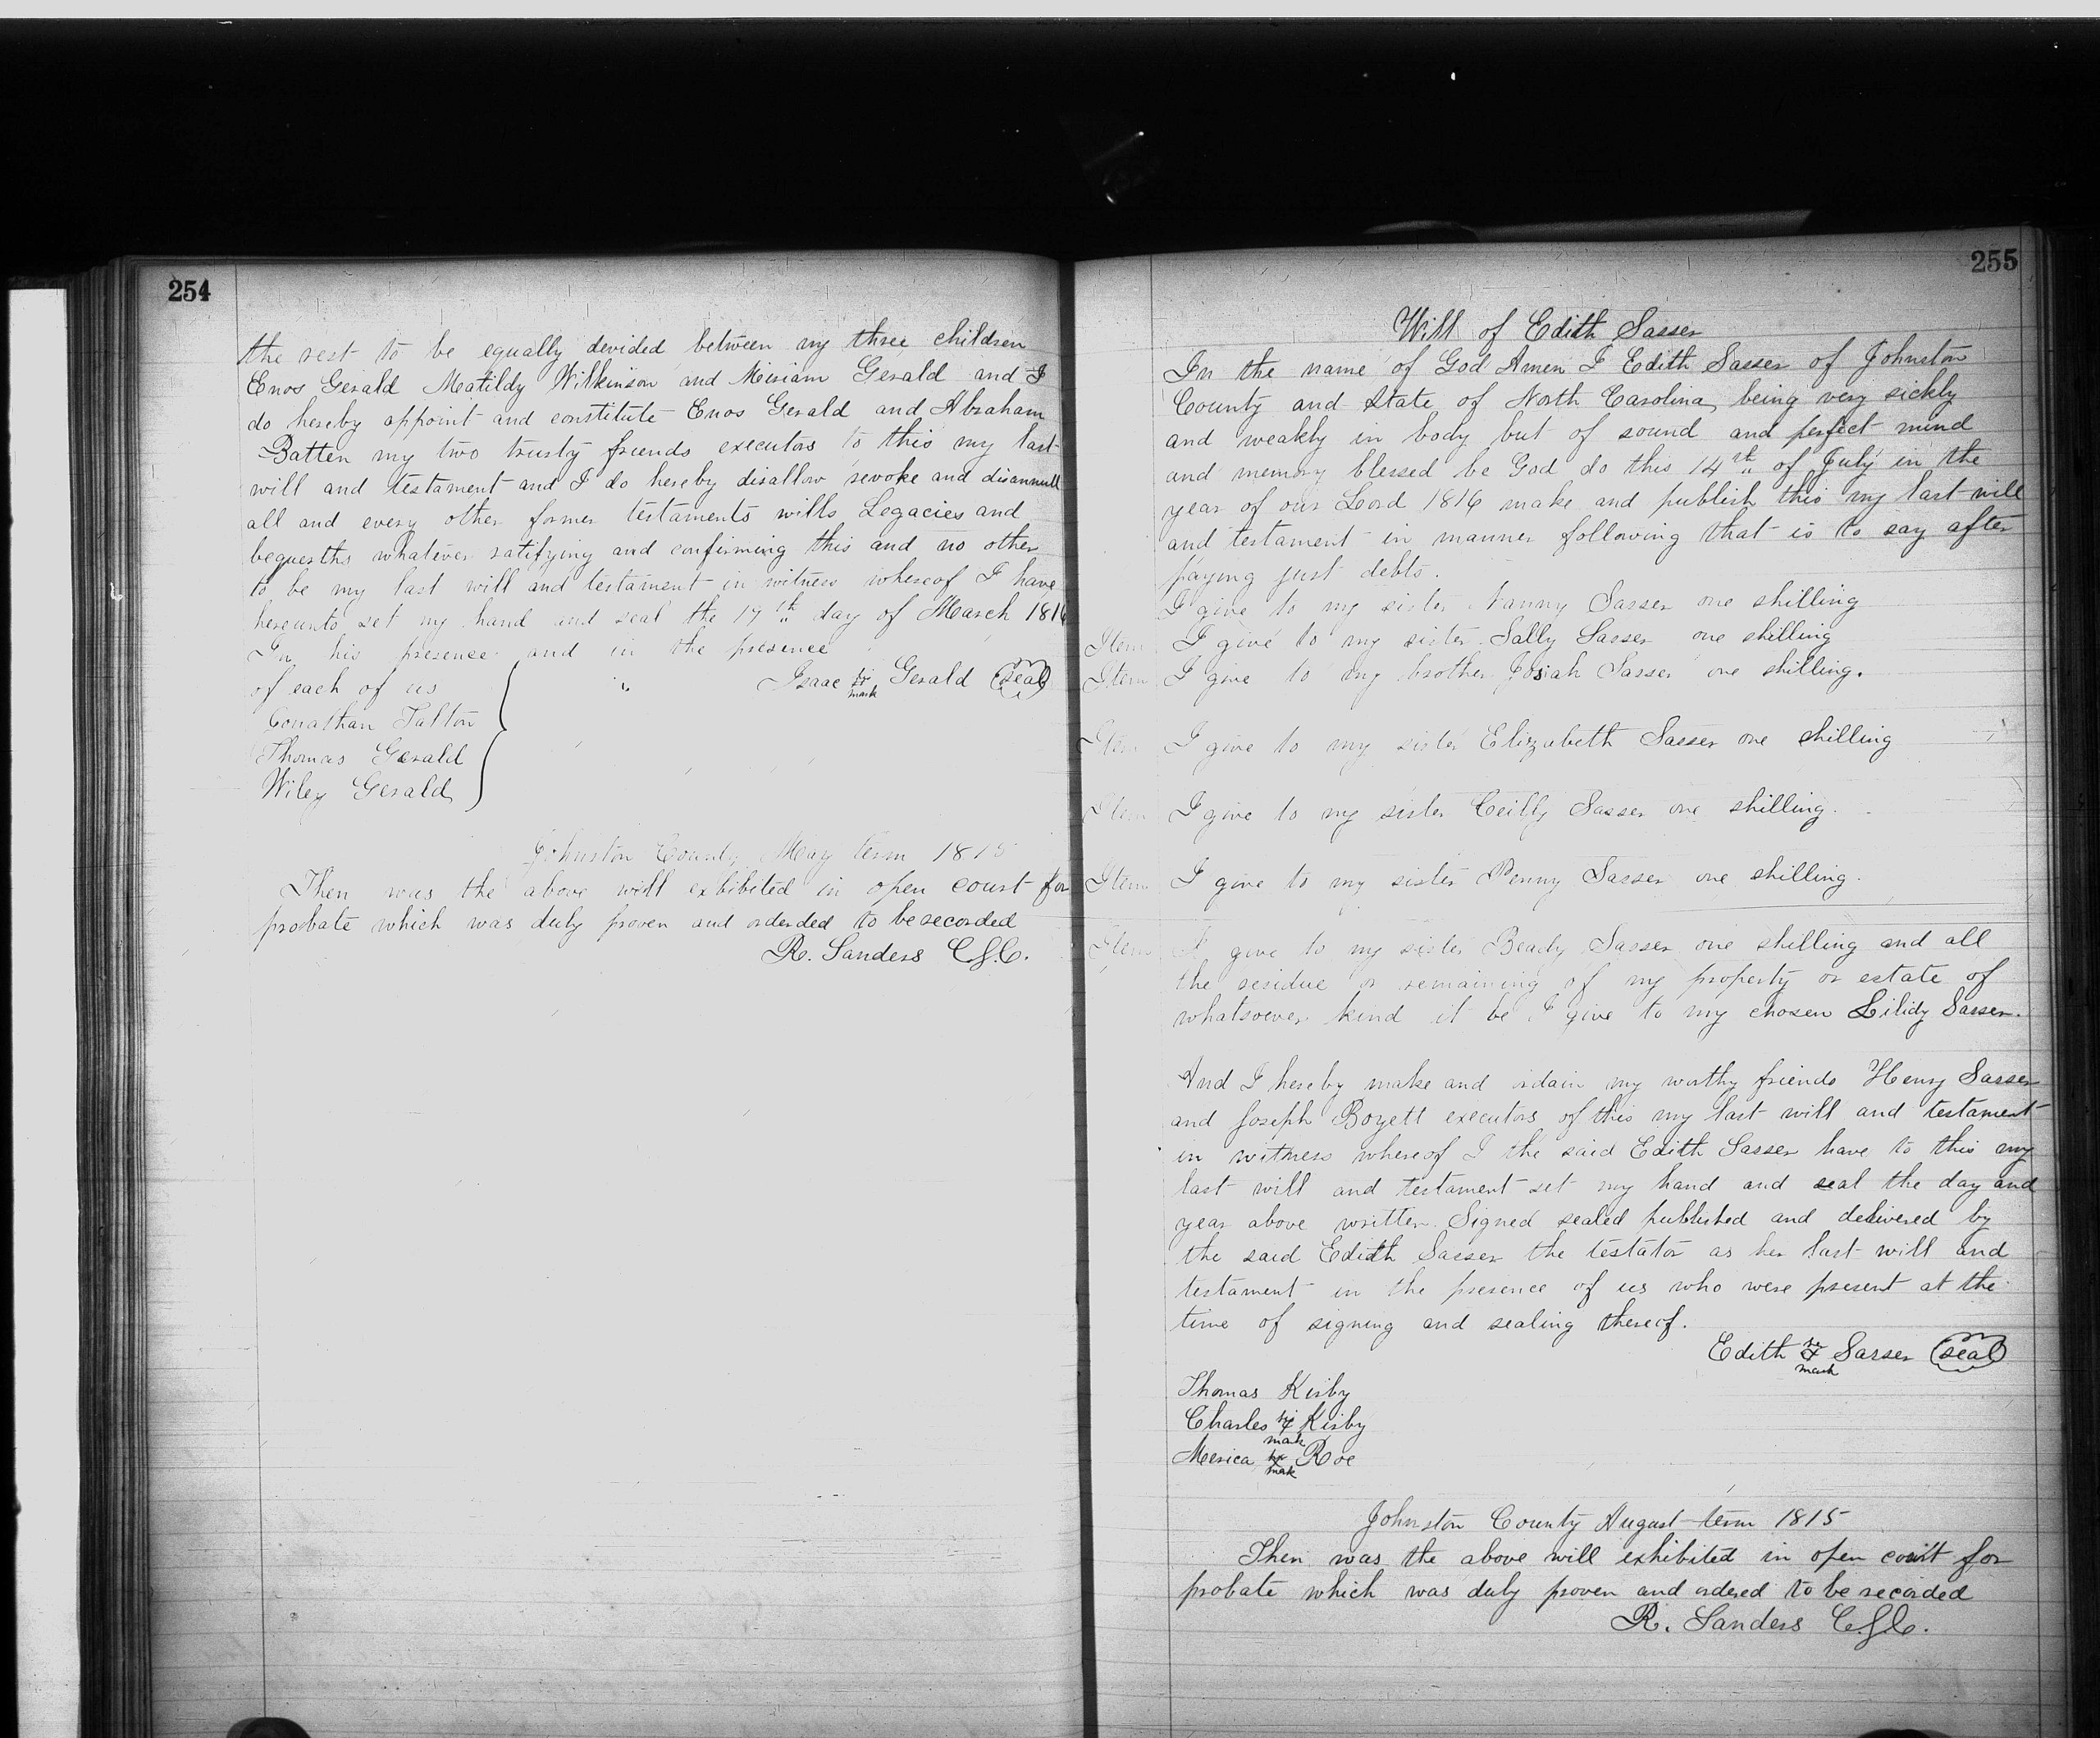 254
the rest to be equally devided between my three children
Enos Gerald Matildy Wilkinson and Miriam Gerald and I
do hereby appoint and constitute Enos Gerald and Abraham
Batten my two trusty friends executors to this my last
will and testament and I do hereby disallow revoke and disannull
all and every other former testaments wills Legacies and
bequerths whatever ratifying and confirming this and no other
to be my last will and testament in witness whereof I have
hereunto set my hand and seal the 19th day of March 1816
In his presence and in the presence
of each of us
Isaac his x mark Gerald (Seal)
Jonathan Talton
Thomas Gerald
Wiley Gerald
Johnston County May term 1815
Then was the above will exhibited in open court for
probate which was duly proven and orderded to be recorded
R. Sanders C.J.C.
255
Will of Edith Sasser
In the name of God Amen I Edith Sasser of Johnston
County and State of North Carolina being very sickly
and weakly in body but of sound and perfect mind
and memory blessed be God do this 14th of July in the
year of our Lord 1816 make and publish this my last will
and testament in manner following that is to say after
paying just debts.
I give to my sister Nanny Sasser one shilling
Item I give to my sister Sally Sasser one shilling
Item I give to my brother Josiah Sasser one shilling.
Item I give to my sister Elizabeth Sasser one shilling
Item I give to my sister Ceilly Sasser one shilling.
Item I give to my sister Penny Sasser one shilling.
Item I give to my sister Beady Sasser one shilling and all
the residue or remaining of my property or estate of
whatsoever kind it be I give to my chosen Lilidy Sasser.
And I hereby make and ordain my worthy friends Henry Sasser
and Joseph Boyett executors of this my last will and testament
in witness whereof I the said Edith Sasser have to this my
last will and testament set my hand and seal the day and
year above written. Signed sealed published and delivered by
the said Edith Sasser the testator as her last will and
testament in the presence of us who were present at the
time of signing and sealing thereof.
Edith her x mark Sasser (seal)
Thomas Kirby
Charles his x mark Kirby
Merica his x mark Roe
Johnston County August term 1815
Then was the above will exhibited in open court for
probate which was duly proven and ordered to be recorded
R. Sanders C.J.C.